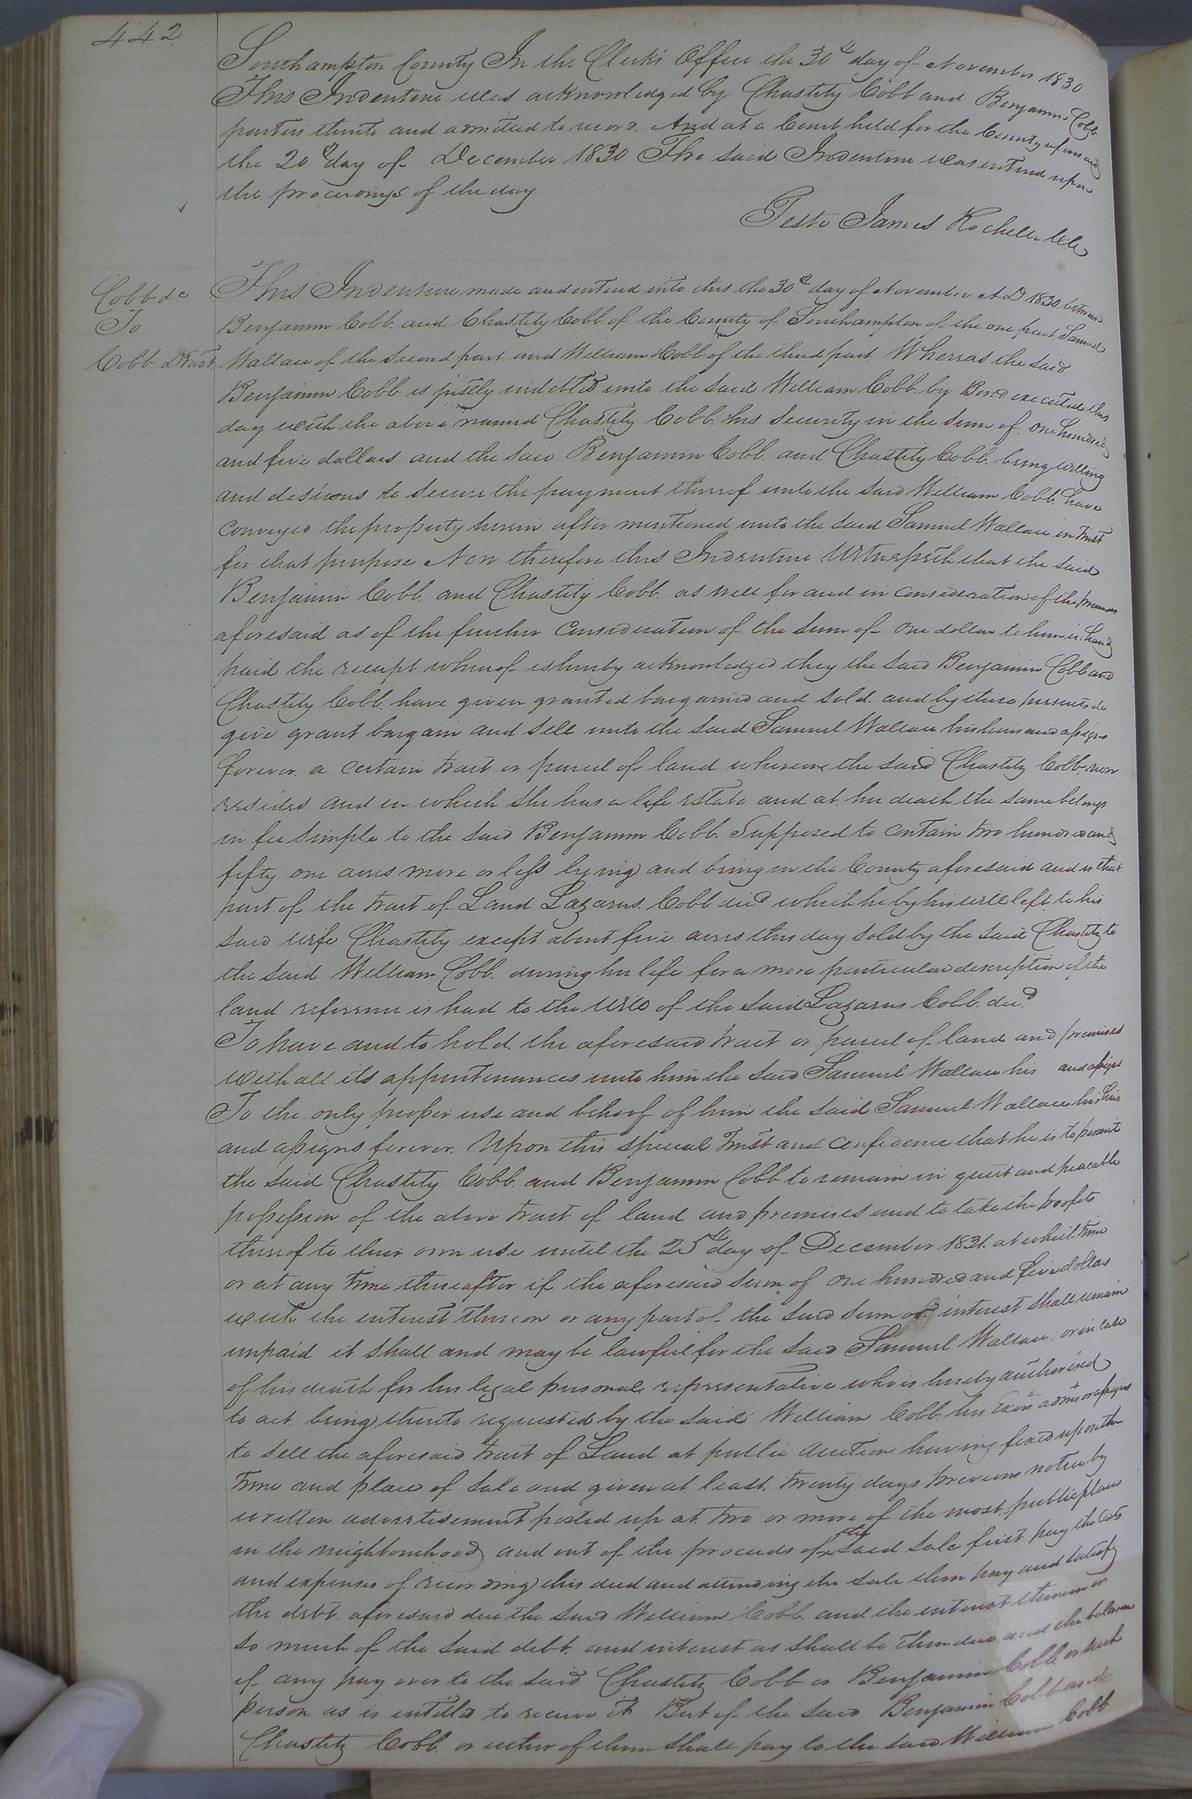 442
Southampton County In the Clerks Office the 30th day of November 1830
This Indenture was acknowledged by Chastity Cobb and Benjamin Cobb
parties thereto and admitted to record. And at a Court held for the County aforesaid
the 20th day of December 1830 The said Indenture was entered upon
the proceedings of the day
Teste James Rochelle Clk
Cobb &c
To
Cobb DTrust
This Indenture made and entered into this the 30th day of November AD 1830 between
Benjamin Cobb and Chastity Cobb of the County of Southampton of the one part Samuel
Wallace of the second part and William Cobb of the third part Whereas the said
Benjamin Cobb is justly indebted unto the said William Cobb by Bond executed this
day with the above named Chastity Cobb his Security in the sum of one hundred
and five dollars and the said Benjamin Cobb and Chastity Cobb being willing
and desirous to secure the payment thereof unto the said William Cobb have
conveyed the property herein after mentioned unto the said Samuel Wallace in trust
for that purpose Now therefore this Indenture Witnesseth that the said
Benjamin Cobb and Chastity Cobb as well for and in consideration of the premises
aforesaid as of the further consideration of the sum of one dollar to him in hand
paid the receipt whereof is hereby acknowledged they the said Benjamin Cobb and
Chastity Cobb have given granted bargained and sold and by these presents do
give grant bargain and sell unto the said Samuel Wallace his heirs and assigns
forever a certain tract or parcel of land whereon the said Chastity Cobb now
resides and in which she has a life Estate and at her death the same belongs
in fee simple to the said Benjamin Cobb Supposed to contain two hundred and
fifty one acres more or less lying and being in the County aforesaid and is that
part of the tract of Land Lazarus Cobb decd which he by his will left to his
said wife Chastity except about five acres this day sold by the said Chastity to
the said William Cobb during her life for a more particular description of the
land reference is had to the will of the said Lazarus Cobb decd
To have and to hold the aforesaid tract or parcel of land and premises
with all its appurtenances unto him the said Samuel Wallace his and assigns
To the only proper use and behoof of him the said Samuel Wallace his heirs
and assigns forever. Upon this special Trust and confidence that he is to permit
the said Chastity Cobb and Benjamin Cobb to remain in quiet and peacable
possession of the above tract of land and premises and to take the profits
thereof to their own use until the 25th day of December 1831 at which time
or at any time thereafter if the aforesaid sum of one hundred and five dollars
with the interest thereon or any part of the said sum or interest shall remain
unpaid it shall and may be lawful for the said Samuel Wallace or in case
of his death for his legal personal representative who is hereby authorised
to act being thereto requested by the said William Cobb his Exors admrs or assigns
to sell the aforesaid tract of Land at public auction having fixed upon the
time and place of sale and given at least twenty days previous notice by
written advertisement posted up at two or more of the most public places
in the neighbourhood and out of the proceeds of the said sale first pay the costs
and expenses of recording this deed and attending the sale then pay and satisfy
the debt aforesaid due the said William Cobb and the interest thereon or
so much of the said debt and interest as shall be then due and the balance
if any pay over to the said Chastity Cobb or Benjamin Cobb or such
person as is entitled to receive it But if the said Benjamin Cobb and
Chastity Cobb or either of them shall pay to the said William Cobb